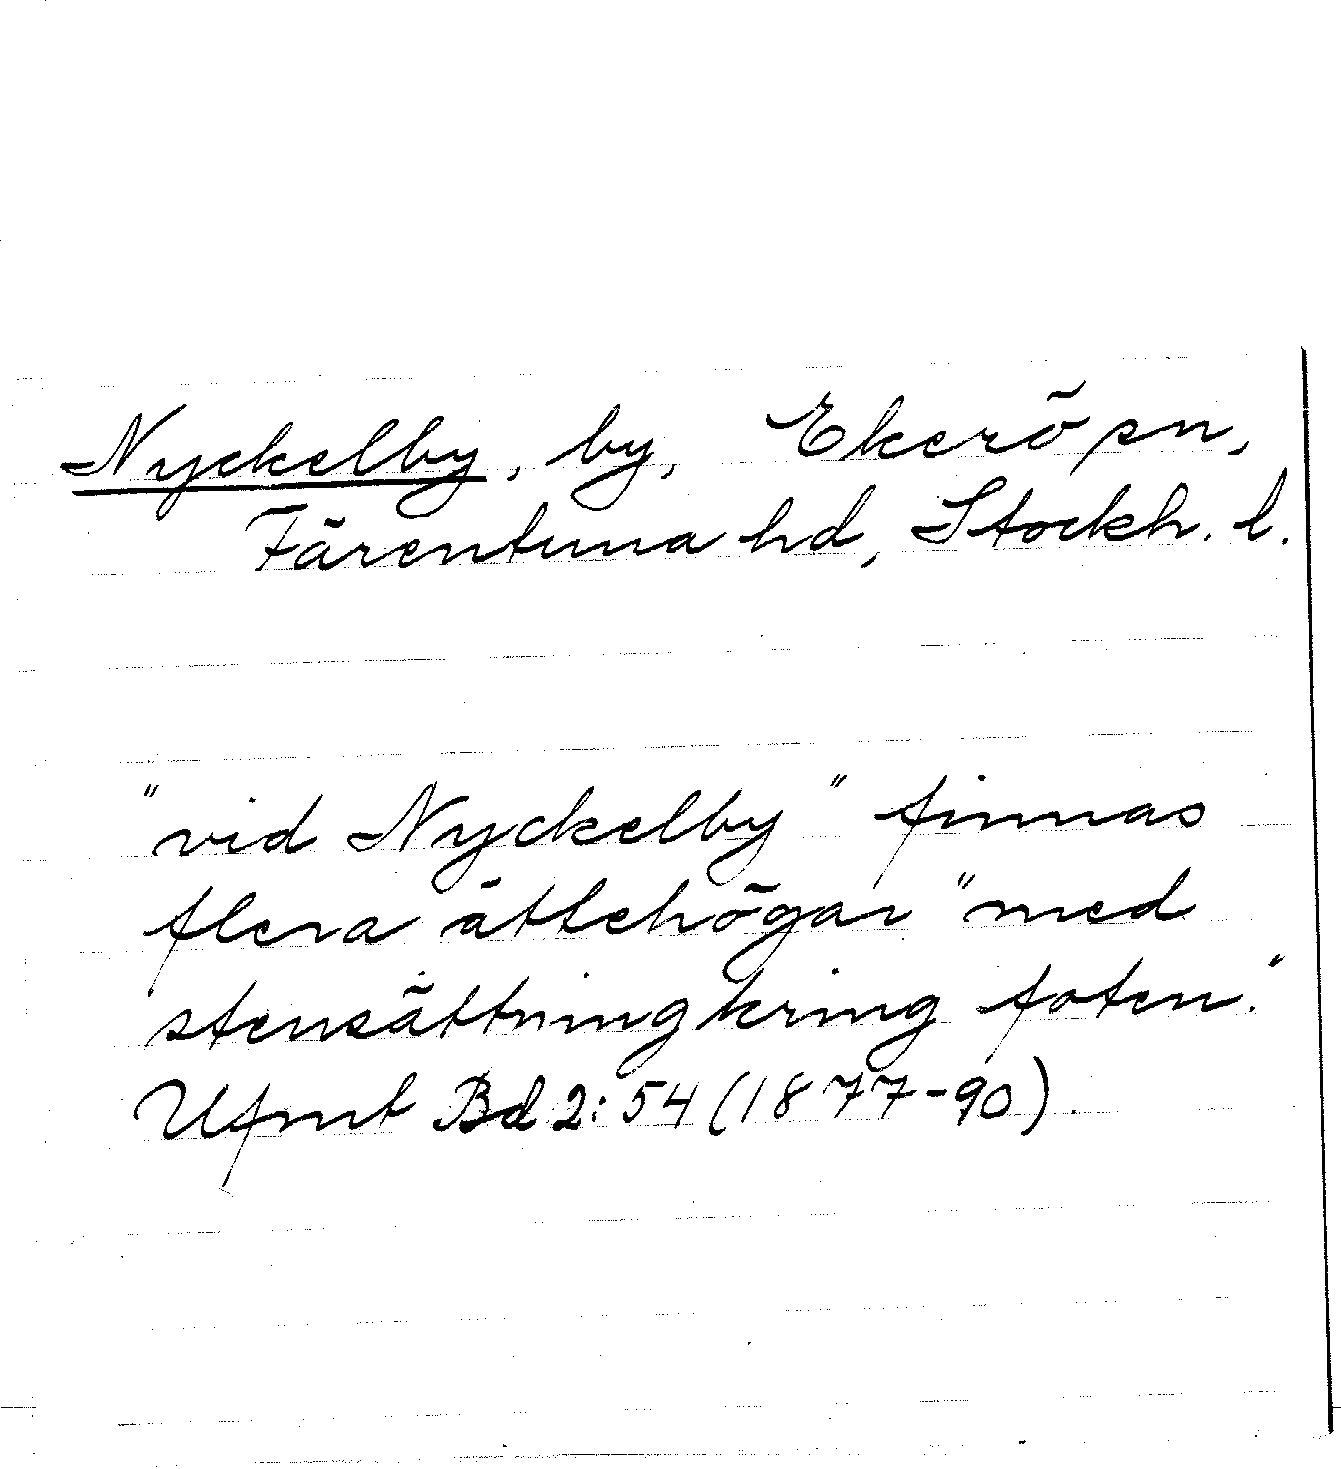 Nyckelby, by, Ekerö sn,
Färentuna hd, Stockh. l.
"vid Nyckelby" finnas
flera ättehögar "med
stensättning kring foten."
Ufmt Bd 2:54 (1877-90).